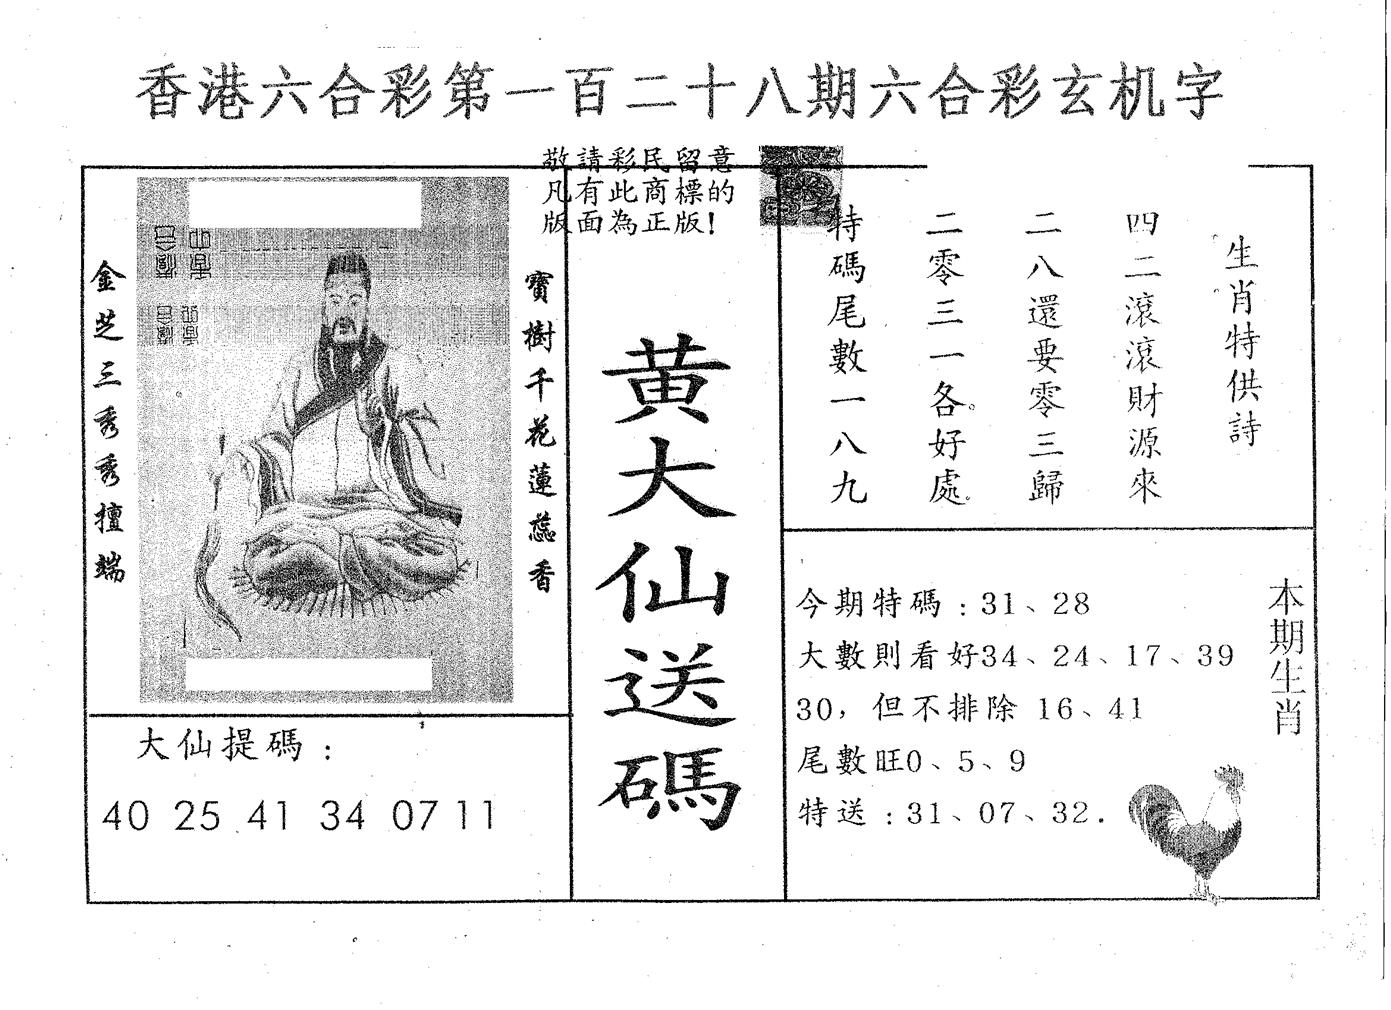 香港六合彩第一百二十八期六合彩玄机字
敬請彩民留意
凡有此商標的
版面為正版!
金芝三秀秀擅端
寶樹千花蓮蕊香
大仙提碼:
40 25 41 34 07 11
黄大仙送碼
生肖特供詩
四二滾滾財源來
二八還要零三歸
二零三一各好處
特碼尾數一八九
本期生肖
今期特碼:31、28
大數則看好34、24、17、39
30,但不排除 16、41
尾數旺0、5、9
特送:31、07、32.